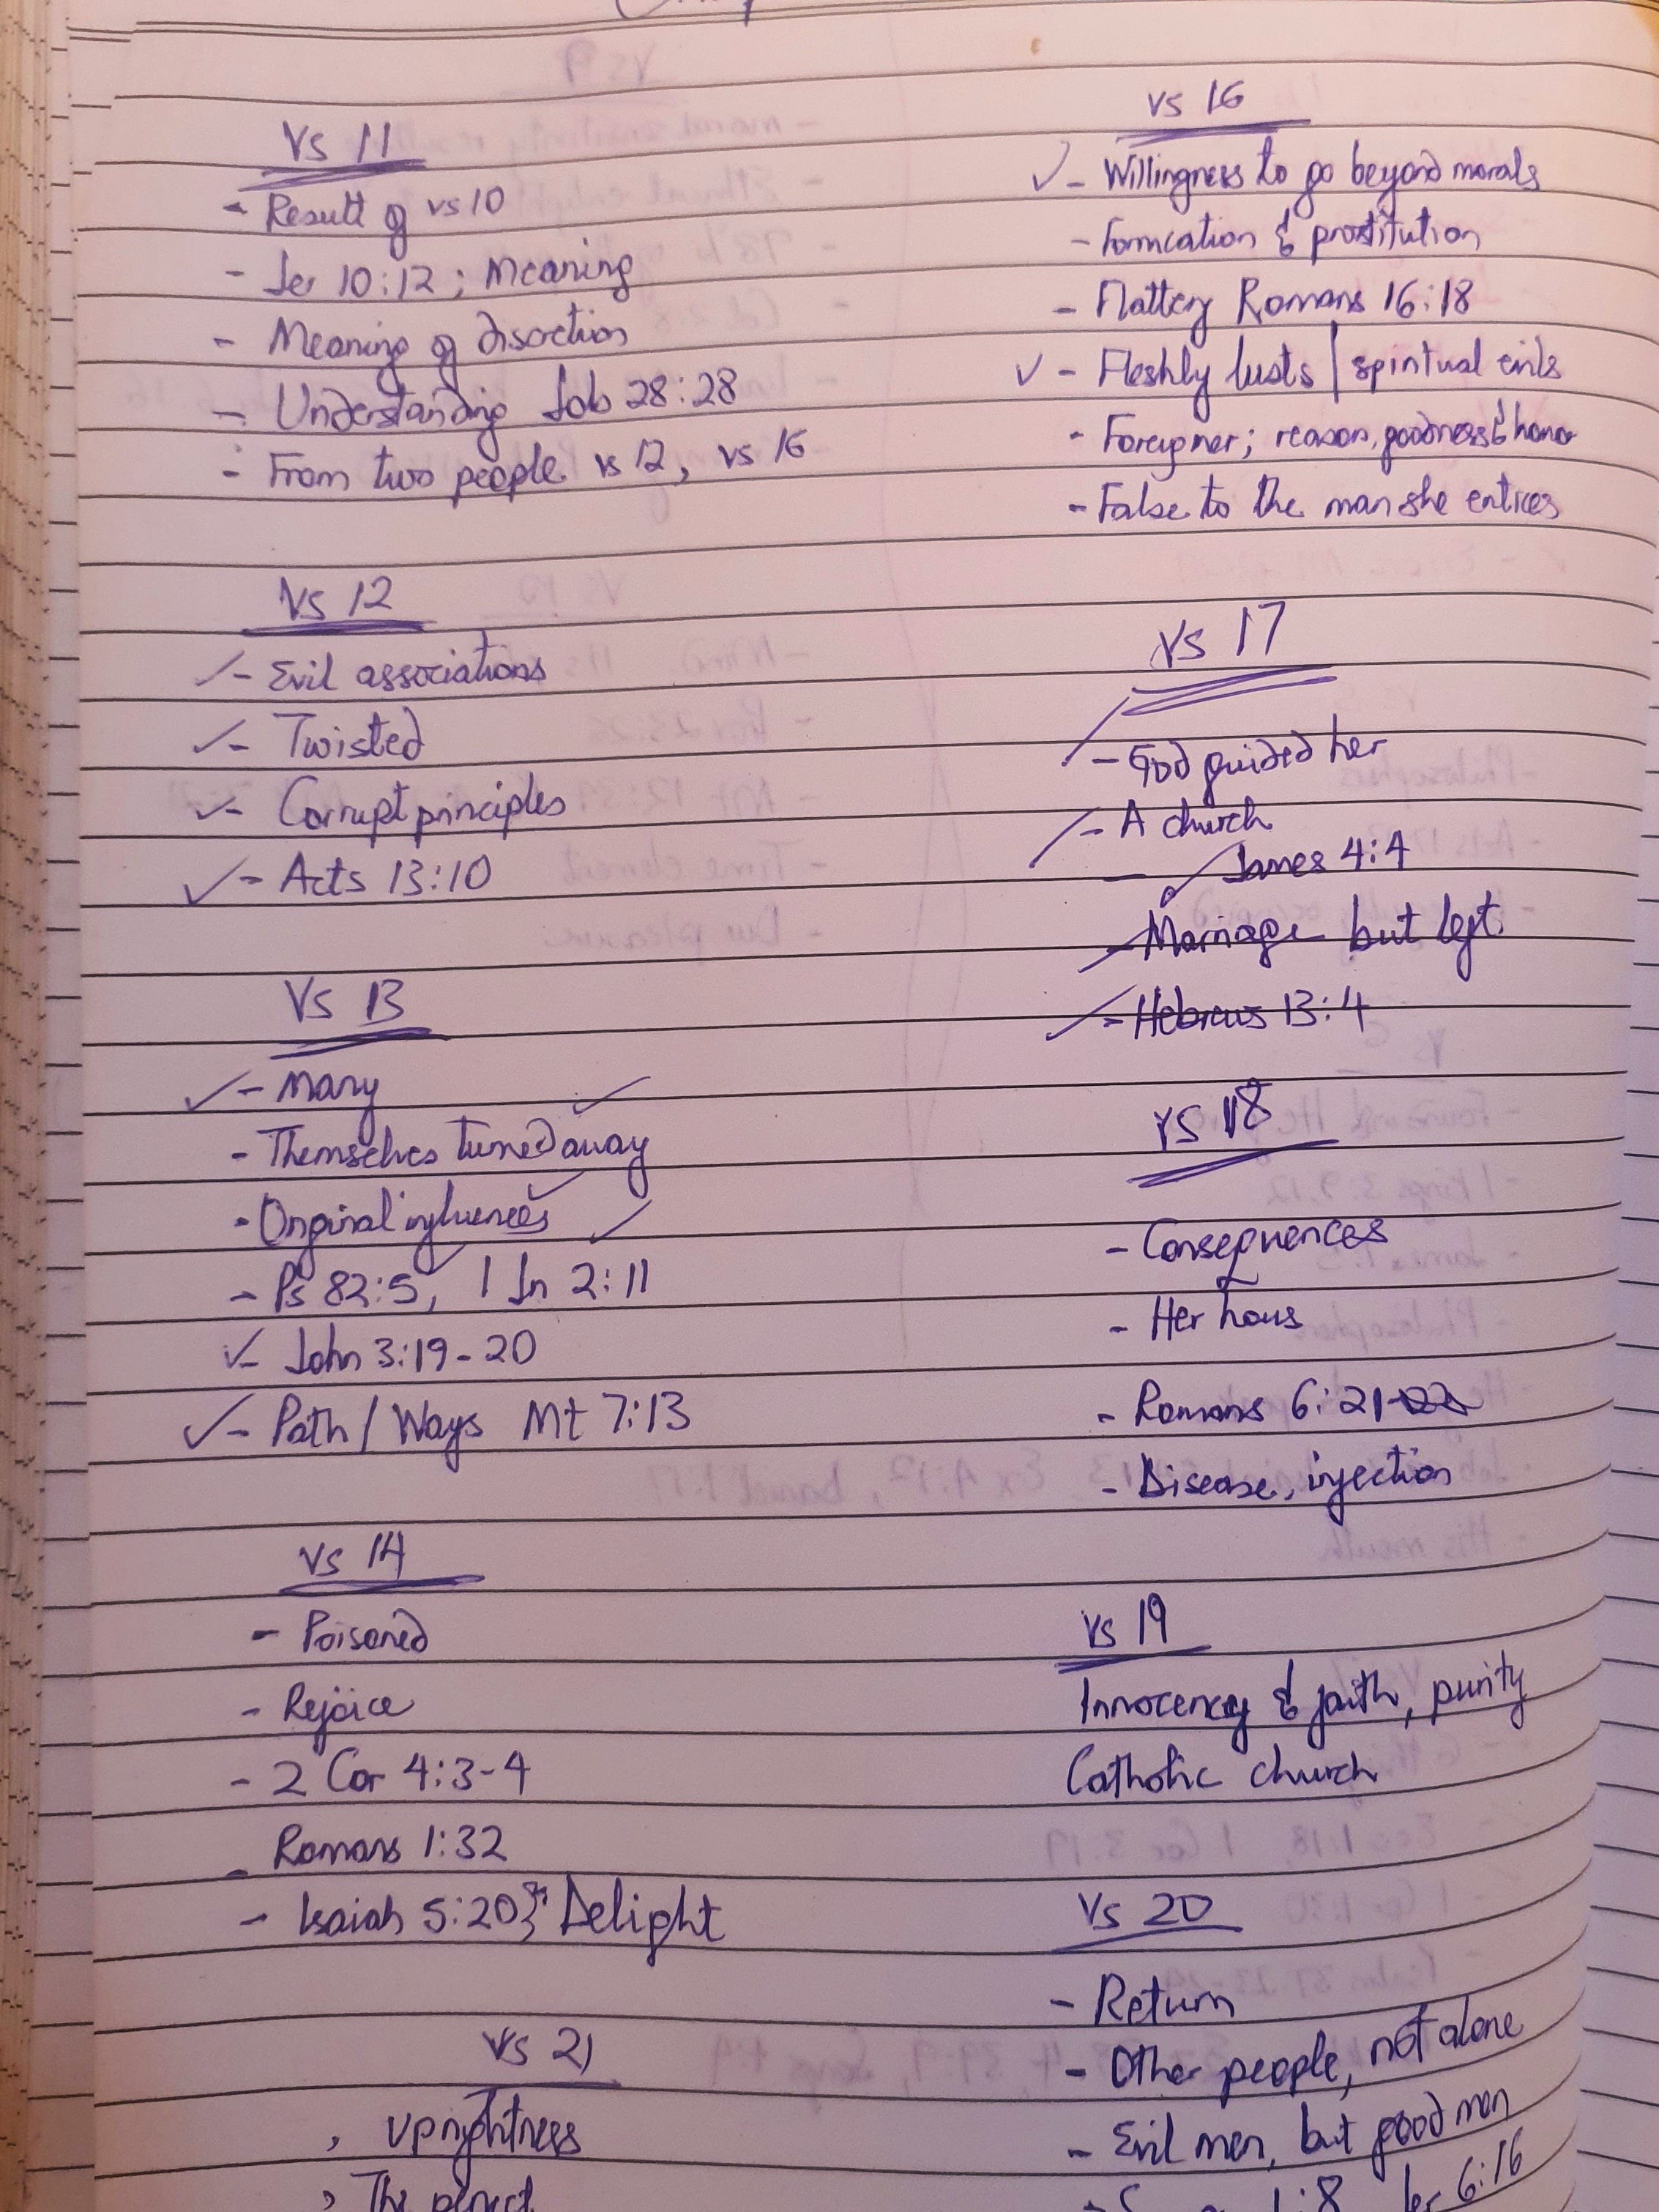 Vs 11
- Result of vs 10
- Jer 10:12 ; Meaning
- Meaning of discretion
- Understanding Job 28:28
- From two people vs 12, vs 16
Vs 12
✓- Evil associations
✓- Twisted
✓- Corrupt principles
✓- Acts 13:10
Vs 13
✓- Many
- Themselves turned away ✓
- Original influences ✓
- Ps 82:5, 1 Jn 2:11
✓- John 3:19-20
✓- Path / Ways Mt 7:13
Vs 14
- Poisoned
- Rejoice
- 2 Cor 4:3-4
- Romans 1:32
- Isaiah 5:20 } Delight
Vs 21
, Uprightness
, The perfect
vs 16
✓- Willingness to go beyond morals
- Fornication & prostitution
- Flattery Romans 16:18
✓- Fleshly lusts / spiritual evils
- Foreigner; reason, goodness & honor
- False to the man she entices
Vs 17
- God guided her
- A church
- James 4:4
- Marriage but left
✓- Hebrews 13:4
Vs 18
- Consequences
- Her hous
- Romans 6:21-22
- Disease, injection
Vs 19
Innocency & faith, purity
Catholic church
Vs 20
- Return
- Other people, not alone
- Evil men, but good men
1:8 Jer 6:16